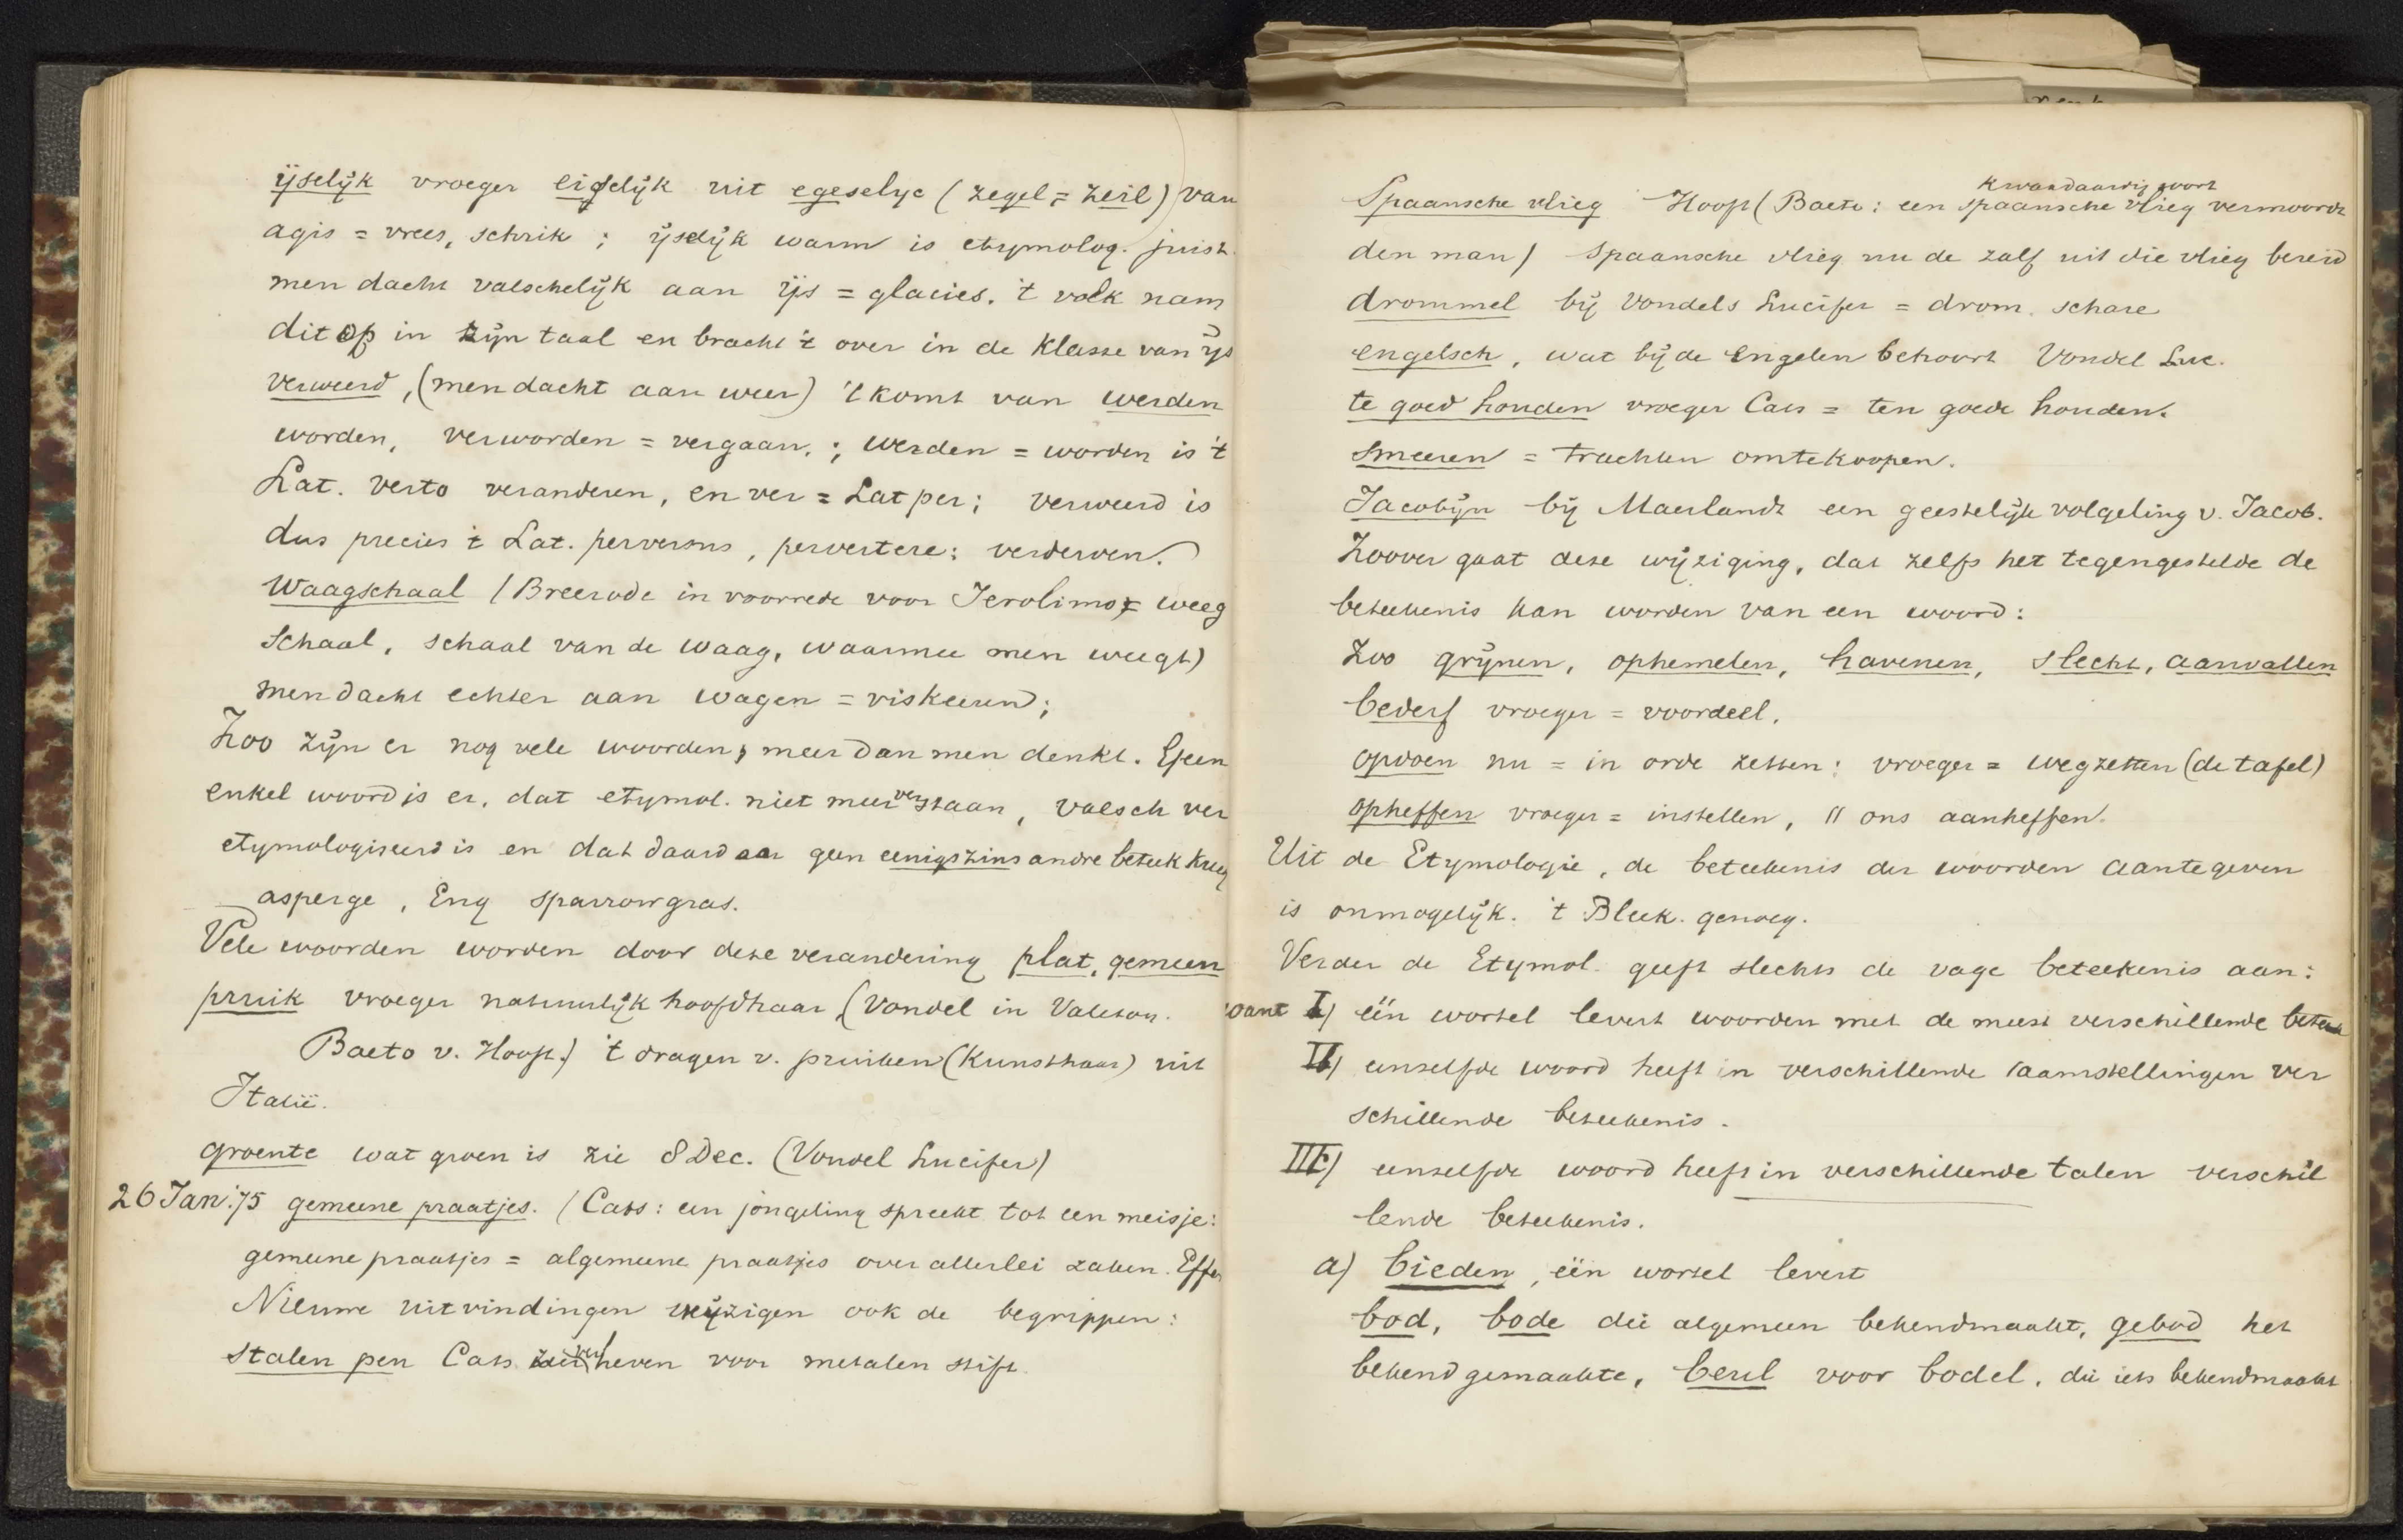 ijselijk vroeger eiselijk uit egeselyc (zegel = zeil) van
agis = vrees, schrik ; ijselijk warm is etymolog. juist.
men dacht valschelijk aan ijs = glacies. 't volk nam
dit op in zijn taal en bracht 't over in de klasse van ijs
verweerd, (men dacht aan weer) 't komt van werden
worden, verworden = vergaan. ; werden = worden is 't
Lat. verto veranderen, en ver = Lat per ; verweerd is
dus precies 't Lat. perversus, pervertere: verderven.
Waagschaal (Breerode in voorrede voor Jerolimo = weeg
schaal, schaal van de waag, waarmee men weegt)
men dacht echter aan wagen = riskeeren;
Zoo zijn er nog vele woorden, meer dan men denkt. Geen
enkel woord is er, dat etymol. niet meer verstaan, valsch ver
etymologiseerd is en dat daardoor geen eenigszins andre beteek kreeg
asperge, Eng sparrowgras.
Vele woorden worden door deze verandering plat, gemeen
pruik vroeger natuurlijk hoofdhaar (Vondel in
Baeto v. Hooft.) 't dragen v. pruiken (kunsthaar) uit
Italië.
groente wat groen is zie 8 Dec. (Vondel Lucifer)
26 Jan: 75 gemeene praatjes. (Cats: een jongeling spreekt tot een meisje:
gemeene praatjes = algemeene praatjes over allerlei zaken.
Nieuwe uitvindingen wijzigen ook de begrippen:
stalen pen Cats verheven voor metalen stift.
kwaadaardig soort
Spaansche vlieg Hooft (Baeto: een spaansche vlieg vermoordt
den man) Spaansche vlieg nu de zalf uit die vlieg bereid
drommel bij Vondels Lucifer = drom. schare
engelsch, wat bij de Engelen behoort Vondel Luc.
te goed houden vroeger Cats = ten goede houden.
smeeren = trachten omtekoopen.
Jacobijn bij Maerlandt een geestelijk volgeling v. Jacob.
Zoover gaat deze wijziging, dat zelfs het tegengestelde de
beteekenis kan worden van een woord:
Zoo grijnen, ophemelen, havenen, slecht, aanvallen
bederf vroeger = voordeel.
opdoen nu = in orde zetten: vroeger = wegzetten (de tafel)
opheffen vroeger = instellen, " ons aanheffen.
Uit de Etymologie, de beteekenis der woorden aantegeven
is onmogelijk. 't Bleek genoeg.
Verder de Etymol. geeft slechts de vage beteekenis aan:
want I) één wortel levert woorden met de meest verschillende beteek
II) eenzelfde woord heeft in verschillende saamstellingen ver
schillende beteekenis.
III) eenzelfde woord heeft in verschillende talen verschil
lende beteekenis.
a) bieden, één wortel levert
bod, bode die algemeen bekendmaakt, gebod het
bekend gemaakte, beul voor bodel, die iets bekendmaakt